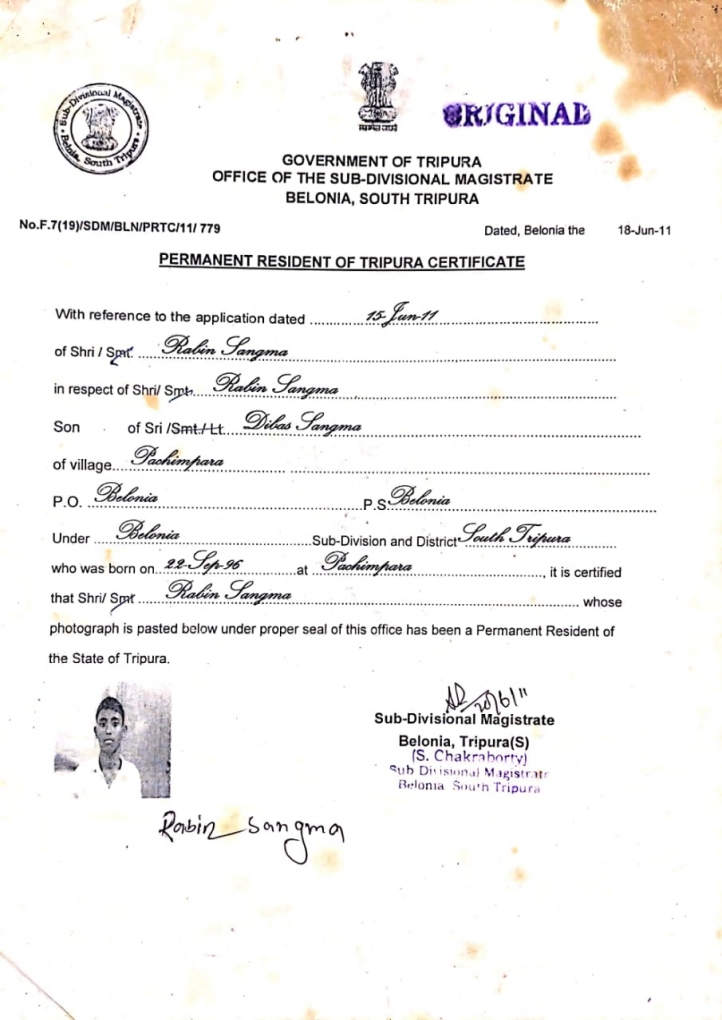 Sub-Divisional Magistrate
Belonia, South Tripura
ORIGINAL
GOVERNMENT OF TRIPURA
OFFICE OF THE SUB-DIVISIONAL MAGISTRATE
BELONIA, SOUTH TRIPURA
No.F.7(19)/SDM/BLN/PRTC/11/ 779 Dated, Belonia the 18-Jun-11
PERMANENT RESIDENT OF TRIPURA CERTIFICATE
With reference to the application dated 15-Jun-11
of Shri / Smt. Rabin Sangma
in respect of Shri/ Smt. Rabin Sangma
Son of Sri /Smt./Lt. Dibas Sangma
of village Pachimpara
P.O. Belonia P.S. Belonia
Under Belonia Sub-Division and District South Tripura
who was born on 22-Sep-96 at Pachimpara, it is certified
that Shri/ Smt Rabin Sangma whose
photograph is pasted below under proper seal of this office has been a Permanent Resident of
the State of Tripura.
20/6/11
Sub-Divisional Magistrate
Belonia, Tripura(S)
(S. Chakraborty)
Sub Divisional Magistrate
Belonia South Tripura
Rabin Sangma